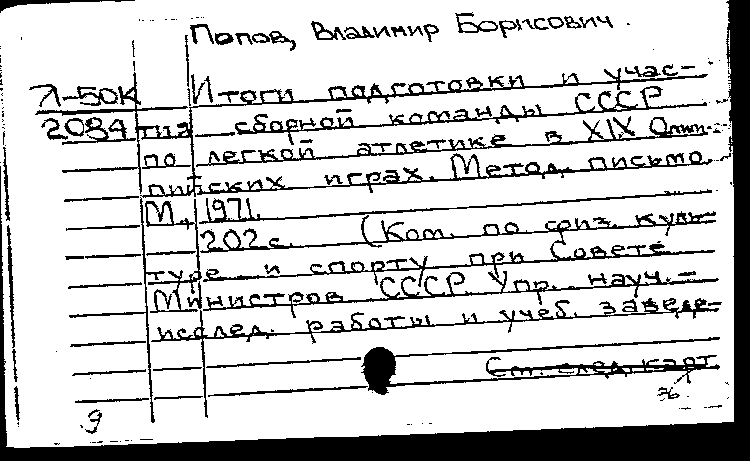 Попов, Владимир Борисович.
Л-50К Итоги подготовки и учас-
2084 тия сборной команды СССР
по легкой атлетике в XIX Олим-
пийских играх. Метод. письмо.
М., 1971.
202 с. (Ком. по физ. куль-
туре и спорту при Совете
Министров СССР. Упр. науч.-
исслед. работы и учеб. заведе-
См. след. карт.
36
9